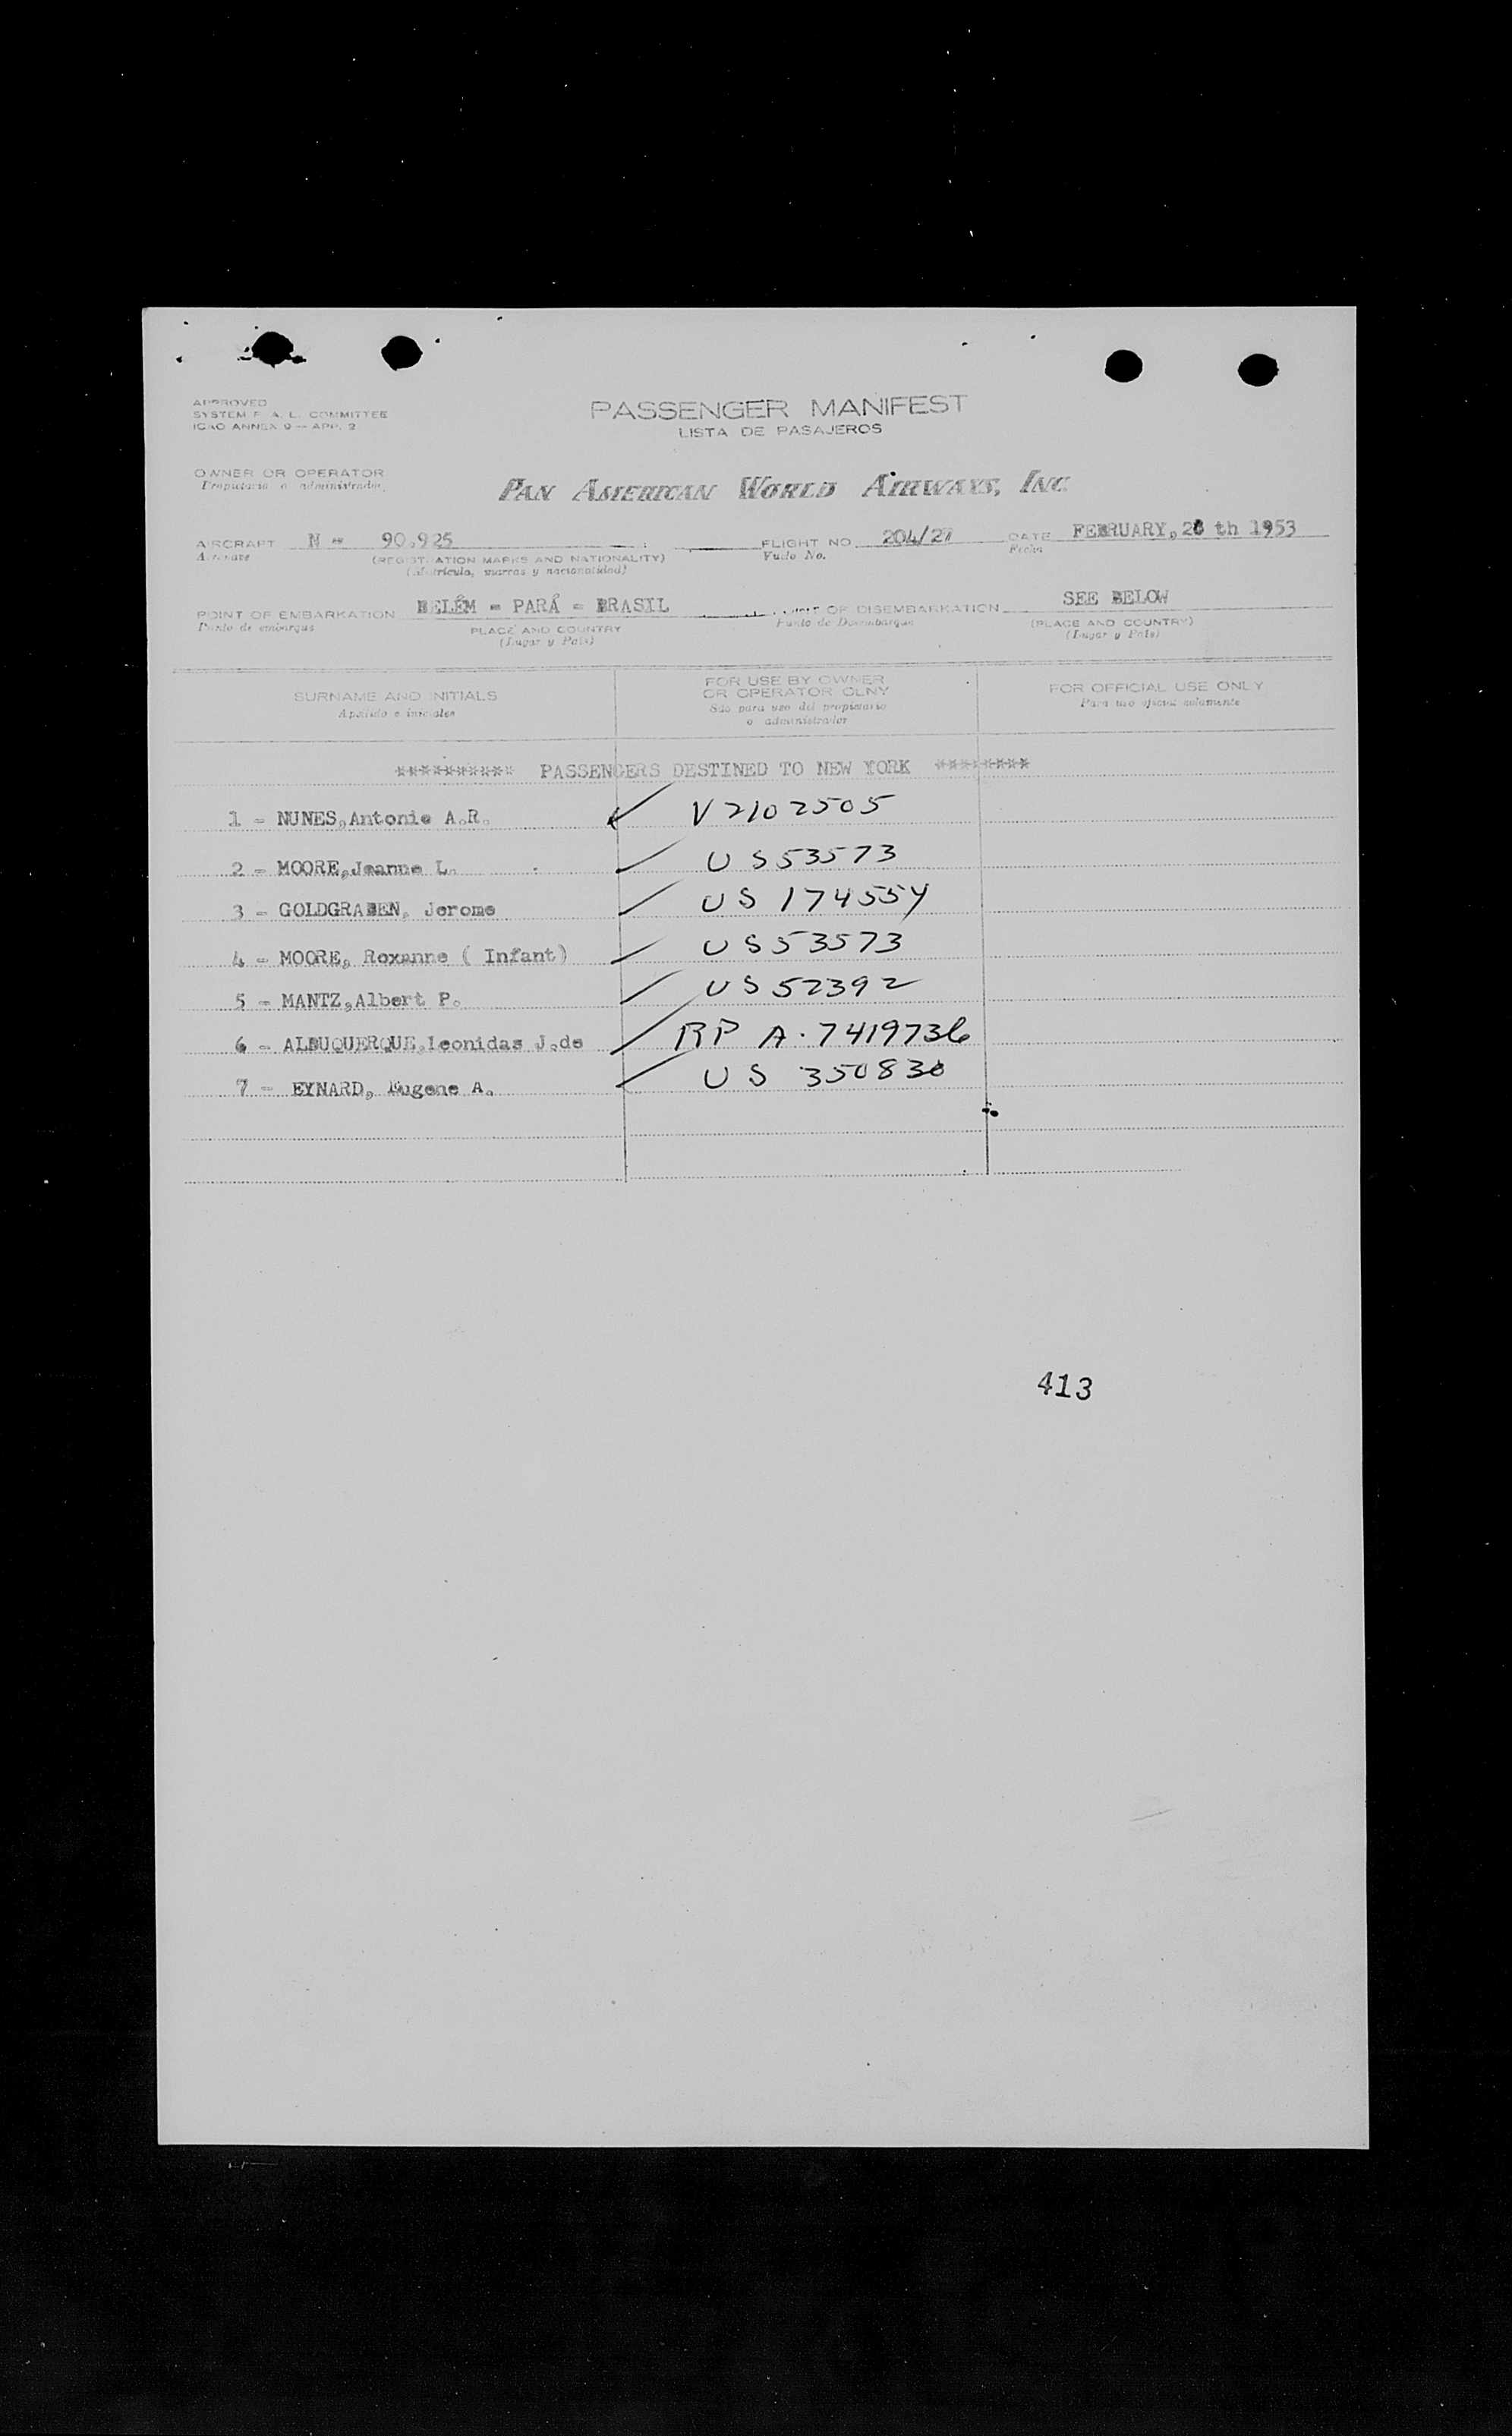 APPROVED
SYSTEM F. A. L. COMMITTEE
ICAO ANNEX 9 — APP. 2
PASSENGER MANIFEST
LISTA DE PASAJEROS
OWNER OR OPERATOR
Propietario o administrador.
PAN AMERICAN WORLD AIRWAYS, INC.
AIRCRAFT N - 90.925 FLIGHT NO. 204/27 DATE FEBRUARY, 28 th 1953
Aeronave (REGISTRATION MARKS AND NATIONALITY) Vuelo No. Fecha
(Matrícula, marcas y nacionalidad)
POINT OF EMBARKATION BELÉM - PARÁ - BRASIL OF DISEMBARKATION SEE BELOW
Punto de embarque PLACE AND COUNTRY Punto de Desembarque (PLACE AND COUNTRY)
(Lugar y País) (Lugar y País)
SURNAME AND INITIALS
Apellido e iniciales
FOR USE BY OWNER
OR OPERATOR OLNY
Sólo para uso del propietario
o administrador
FOR OFFICIAL USE ONLY
Para uso oficial solamente
********** PASSENGERS DESTINED TO NEW YORK ********
1 - NUNES,Antonio A.R. V2102505
2 - MOORE,Jeanne L. US53573
3 - GOLDGRABEN, Jerome US 174554
4 - MOORE, Roxanne ( Infant) US53573
5 - MANTZ,Albert P. US52392
6 - ALBUQUERQUE,leonidas J.de RP A.7419736
7 - EYNARD, Eugene A. US 350830
413